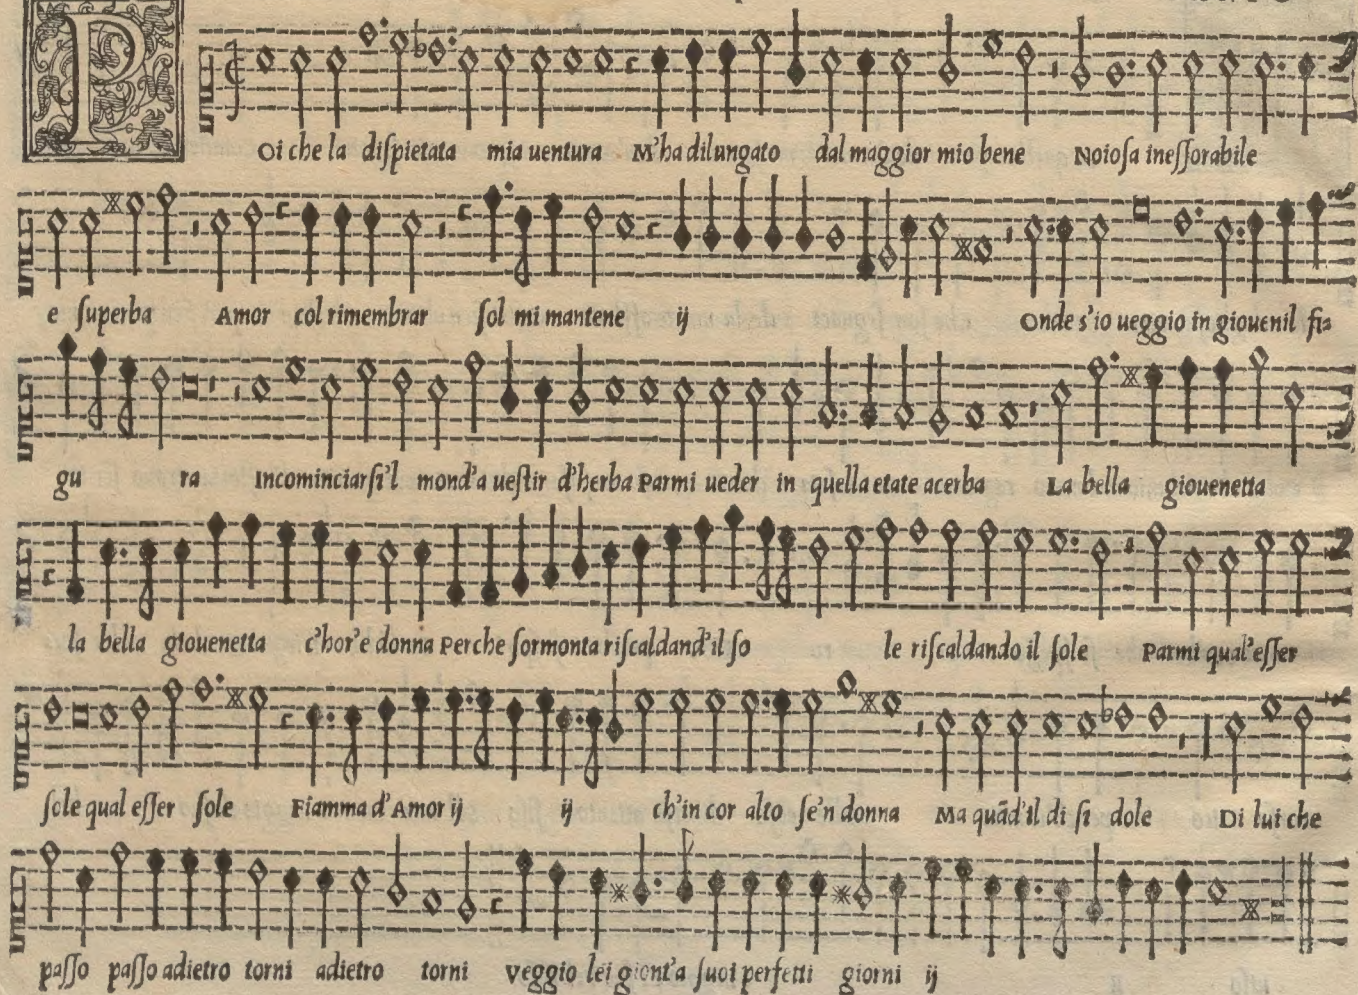 POi che la dispietata mia uentura M'ha dilungato dal maggior mio bene Noiosa inessorabile
e superba Amor col rimembrar sol mi mantene ij Onde s'io ueggio in giouenil fi=
gu ra Incominciarsi'l mond'a uestir d'herba Parmi ueder in quella etate acerba La bella giouenetta
la bella giouenetta c'hor'e donna Perche sormonta riscaldand'il so le riscaldando il sole Parmi qual'esser
sole qual esser sole Fiamma d'Amor ij ij ch'in cor alto se'n donna Ma quãd'il di si dole Di lui che
passo passo adietro torni adietro torni veggio lei giont'a suoi perfetti giorni ij